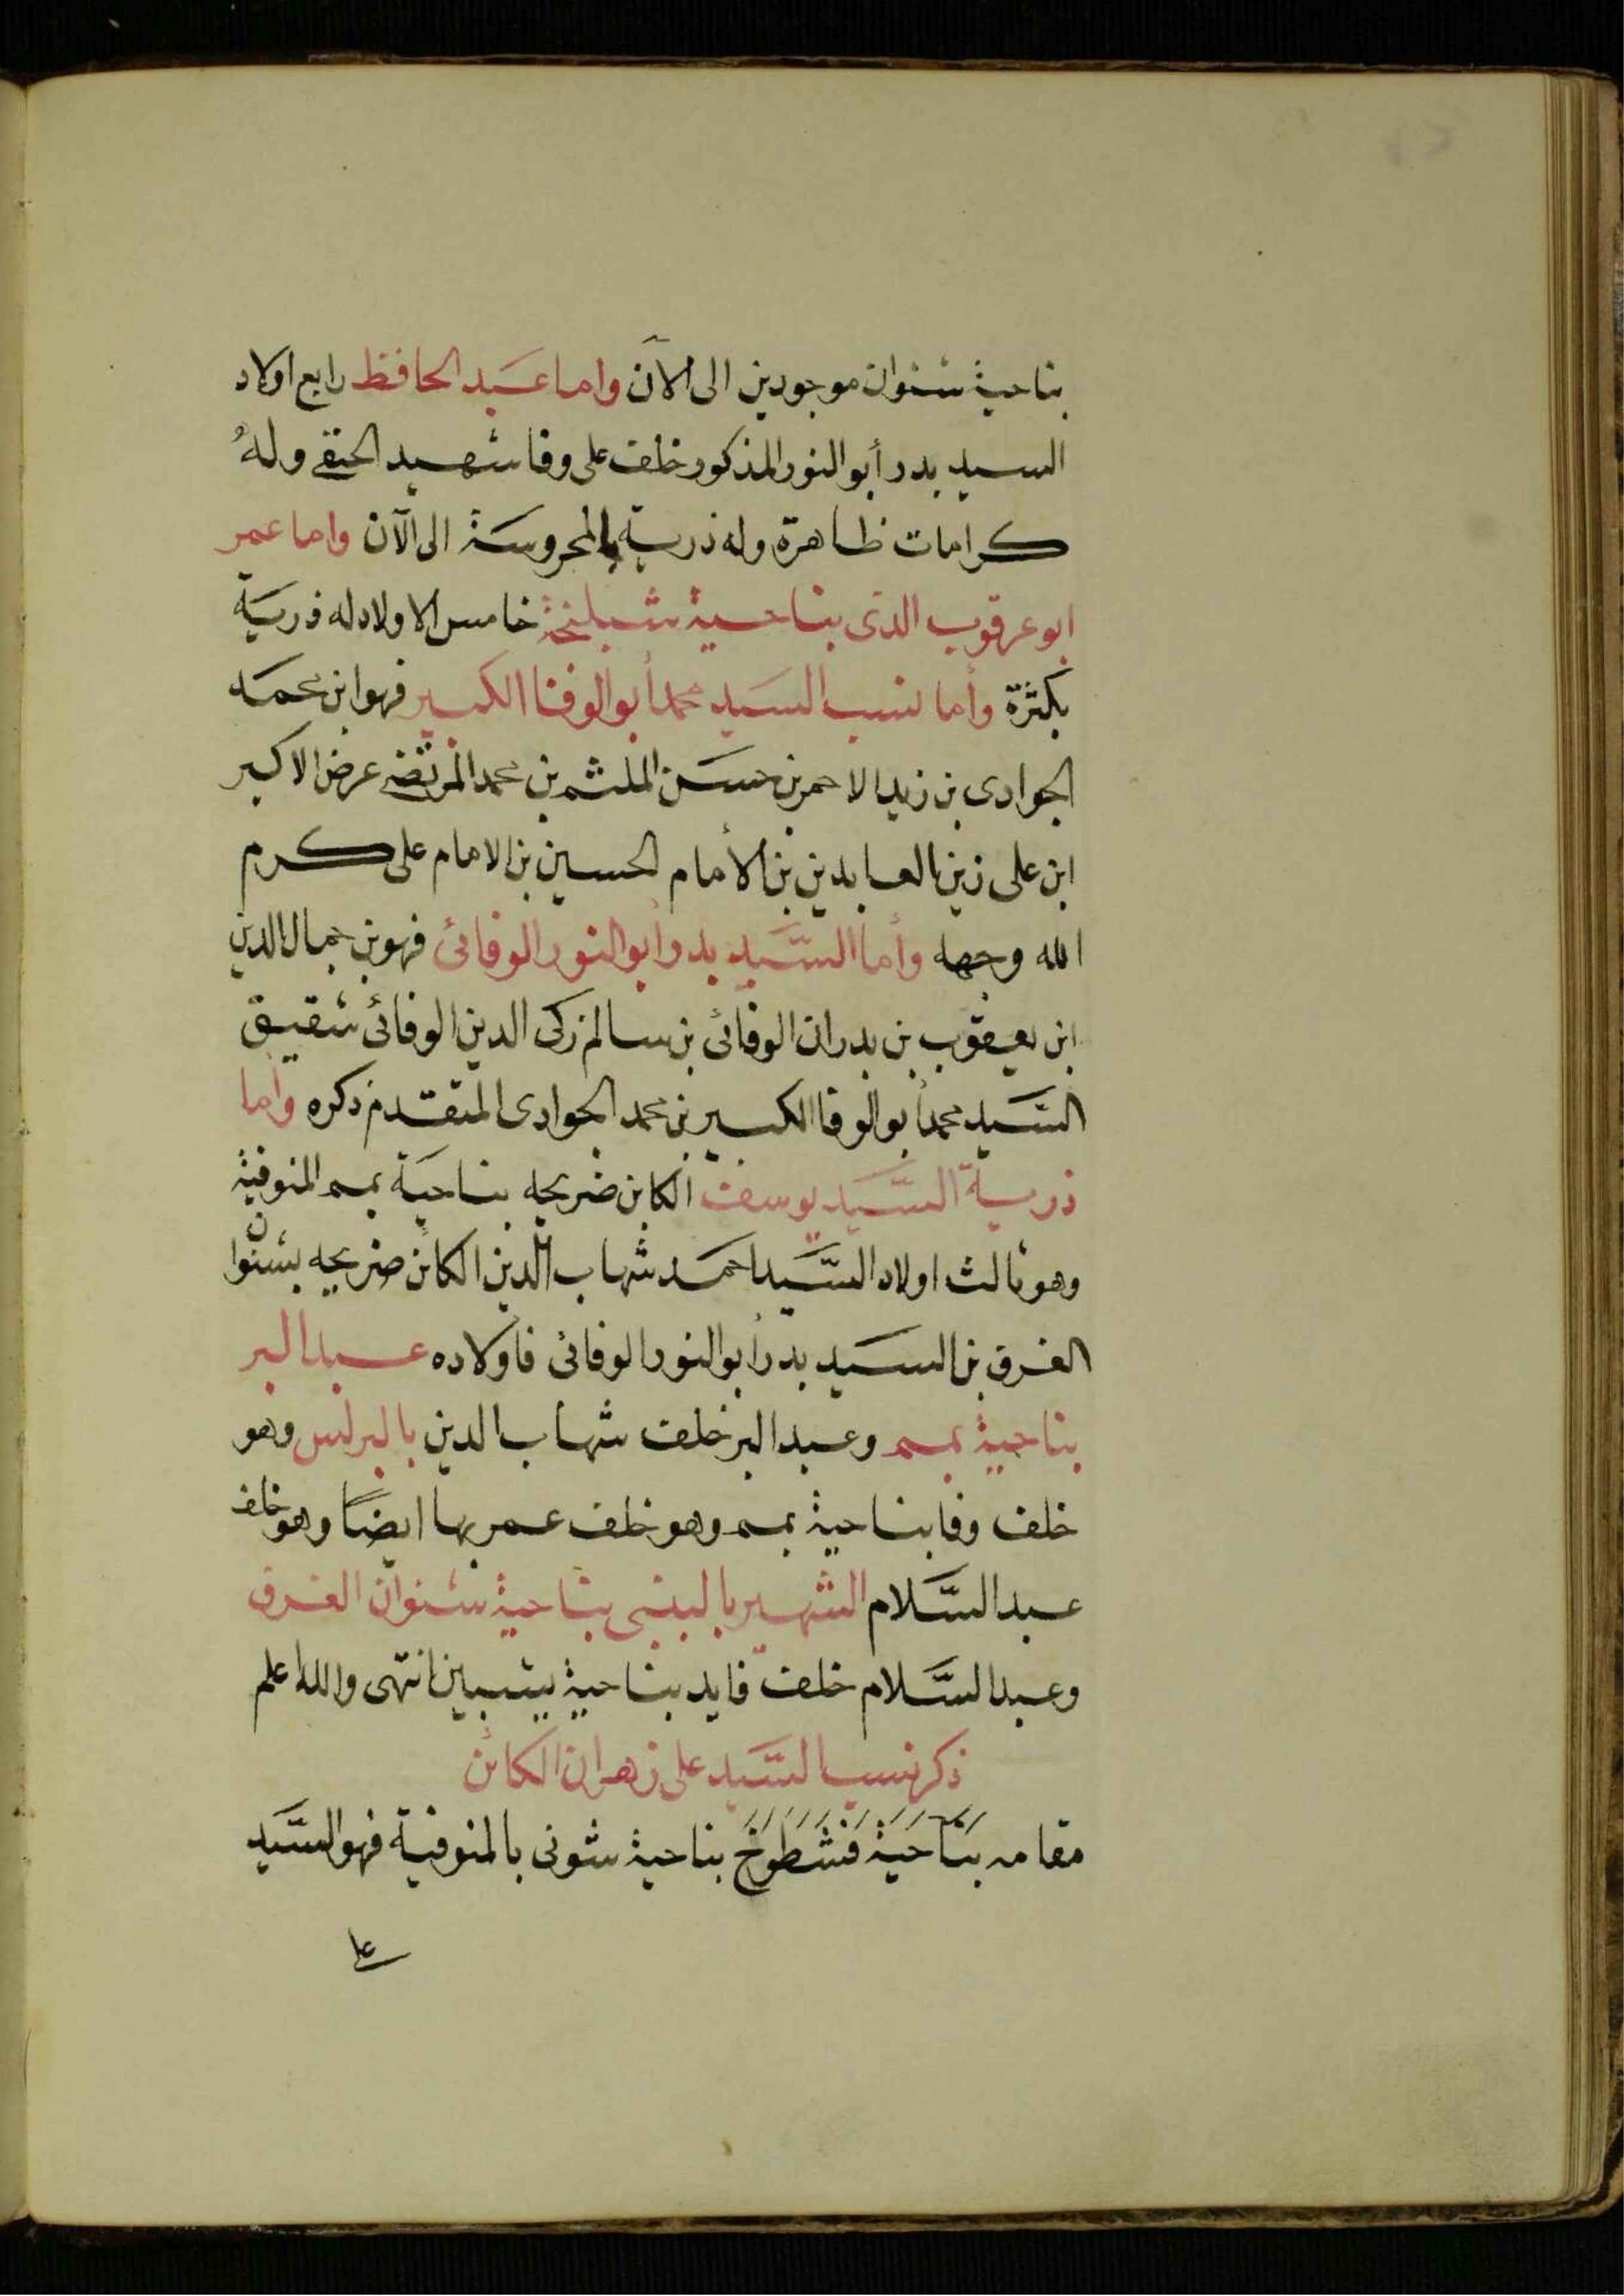 بناحية شنوان موجودين الى الآن واما عبد الحافظ رابع اولاد
السيد بدر أبو النور المذكور خلف على وفا شهيد الحنفى وله
كرامات ظاهرة وله ذرية بالمحروسة الى الآن واما عمر
ابو عرقوب الذى بناحية شبلنجة خامس الاولاد له ذرية
بكثرة وأما نسب السيد محمد أبو الوفا الكبير فهو ابن محمد
الجوادى بن زيد الاحمر بن حسن الملثم بن محمد المرتضى عرض الاكبر
ابن على زين العابدين بن الأمام الحسين بن الامام على كرم
الله وجهه وأما السيد بدر أبو النور الوفائى فهو بن جمال الدين
ابن يعقوب بن بدران الوفائى بن سالم زكى الدين الوفائى شقيق
السيد محمد أبو الوفا الكبير بن محمد الجوادى المتقدم ذكره وأما
ذرية السيد يوسف الكاين ضريحه بناحية بمم المنوفية
وهو ثالث اولاد السيد احمد شهاب الدين الكائن ضريحه بشنوان
الغرق بن السيد بدر أبو النور الوفائى فأولاده عبد البر
بناحية بمم وعبد البر خلف شهاب الدين بالبرلس وهو
خلف وفا بناحية بمم وهو خلف عمر بها ايضًا وهو خلف
عبد السلام الشهير بناحية شنوان الغرق
وعبد السلام خلف فايد بناحية انتهى والله اعلم
ذكر نسب السيد على زهران الكائن
مقامه بناحية فنشطوخ بناحية شونى بالمنوفية فهو السيد
على